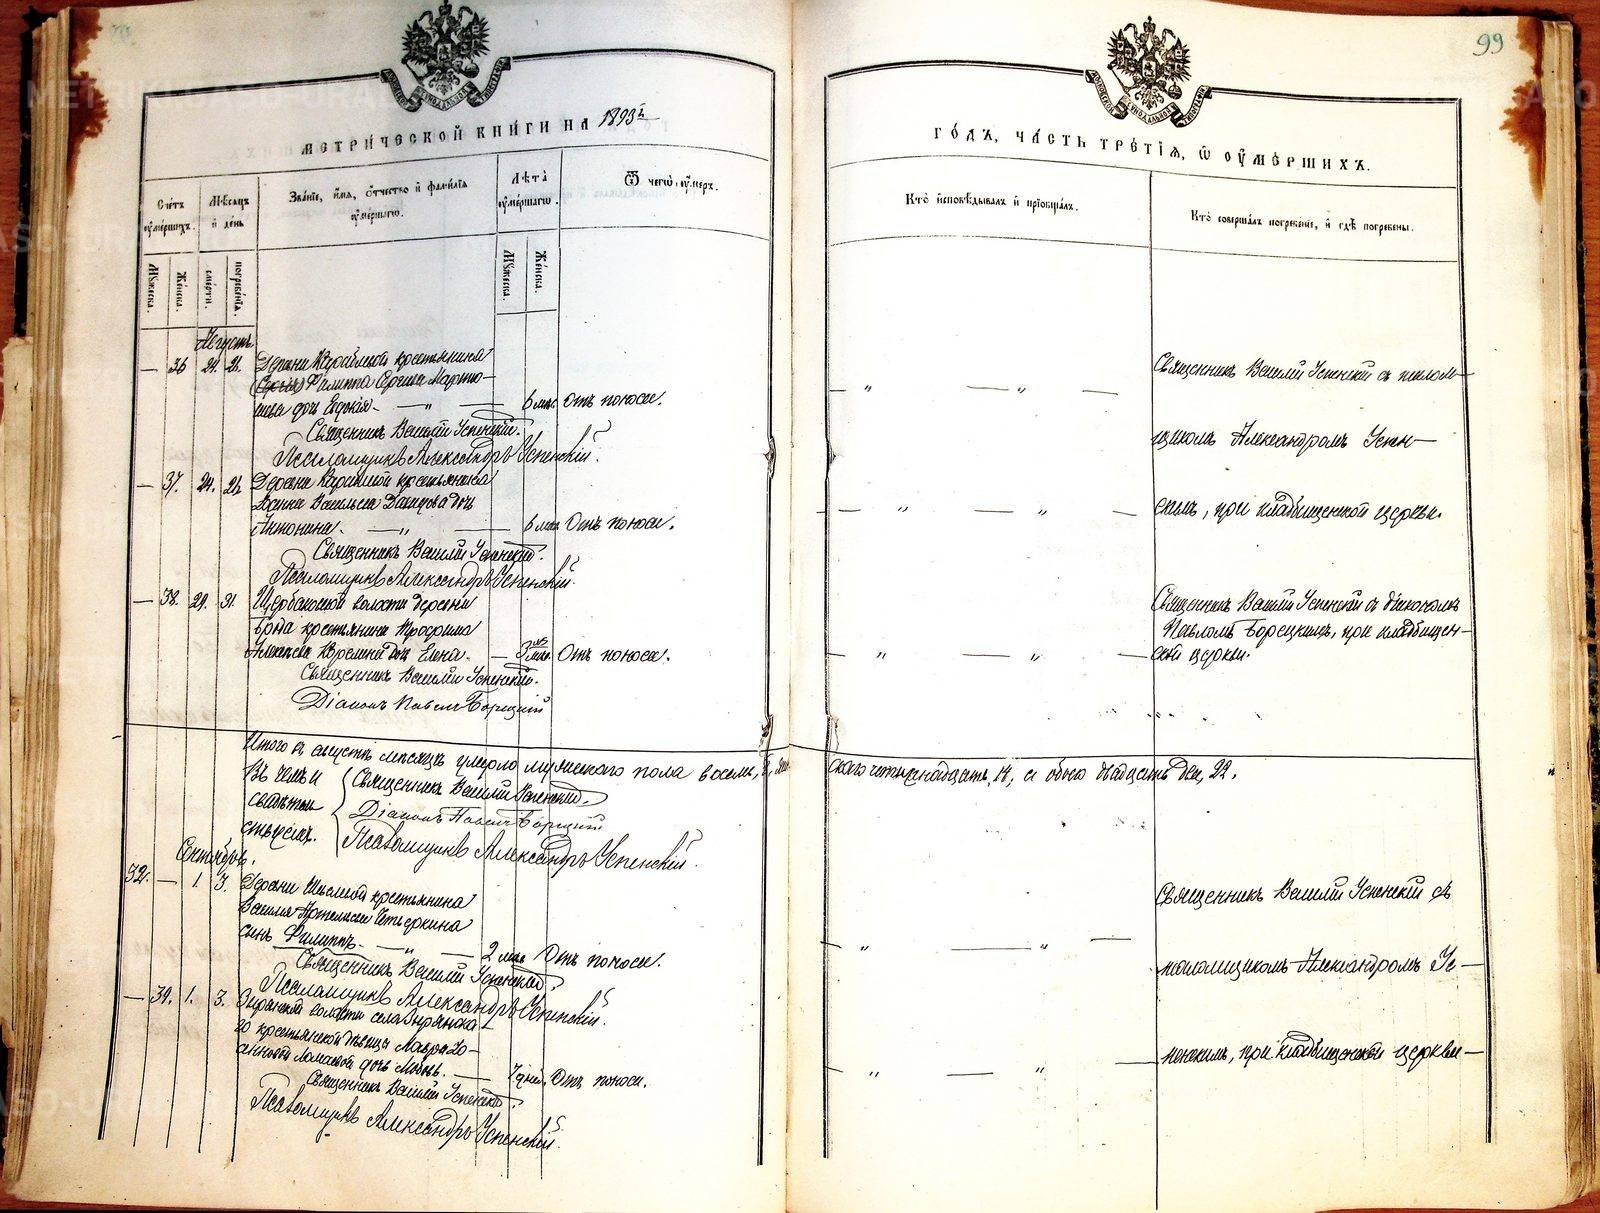 99
МЕТРИ́ЧЕСКОЙ КНИ́ГИ НА 1893й
ГО́ДЪ, ЧА́СТЬ ТРЕ́ТІѦ, Ѡ ОУМЕ́РШИХЪ.
Сче́тъ оуме́ршихъ.
Мѣ́сяцъ и де́нь
Зва́ніе, и́мя, о́тчество и фами́лія оуме́ршагѡ.
Лѣ́та оуме́ршагѡ.
Ѿ чегѡ̀ оу́меръ.
Кто̀ исповѣ́дывалъ и пріобща́лъ.
Кто̀ соверша́лъ погребе́ніе, и гдѣ̀ погребены̀.
Мꙋжеска.
Же́нска.
сме́рти.
погребе́нія.
Мꙋжеска.
Же́нска.
Августъ
— 36 24. 26. Деревни крестьянина
Филиппа Сергиева
дочь Евдокія — „ — 6 мес. Отъ поноса.
Священникъ Василій Успенскій.
Псаломщикъ Александръ Успенскій.
Священникъ Василій Успенскій съ псалом—
щикомъ Александромъ Успен—
скимъ, при кладбищенской церкви.
— 37. 24. 26. Деревни крестьянина
Васильева Давыдова дочь
Антонина. — „ — 6 мес. Отъ поноса.
Священникъ Василій Успенскій.
Псаломщикъ Александръ Успенскій.
— 38. 29. 31. Щербаковской волости деревни
Брода крестьянина Трофима
дочь Елена. — 3 мес. Отъ поноса.
Священникъ Василій Успенскій.
Діаконъ Павелъ Борецкій
Священникъ Василій Успенскій съ діакономъ
Павломъ Борецкимъ, при кладбищен—
ской церкви.
Итого въ августѣ мѣсяцѣ умерло мужескаго пола восемь, 8, жен
скаго четырнадцать, 14, а обоего двадцать два, 22.
Въ чемъ и
свидѣтель
ствуемъ.
Священникъ Василій Успенскій.
Діаконъ Павелъ Борецкій
Псаломщикъ Александръ Успенскій.
Сентябрь.
32. — 1. 3. Деревни крестьянина
Василія Четверкина
сынъ Филиппъ. — „ — 2 мес. Отъ поноса.
Священникъ Василій Успенскій.
Псаломщикъ Александръ Успенскій.
Священникъ Василій Успенскій съ
псаломщикомъ Александромъ Ус—
пенскимъ, при кладбищенской церкви—
— 39. 1. 3. Зырянской волости села Зырянска—
го крестьянской дѣвицы Мавры Іо—
анновой дочь Любовь. — 7 дней. Отъ поноса.
Священникъ Василій Успенскій.
Псаломщикъ Александръ Успенскій.